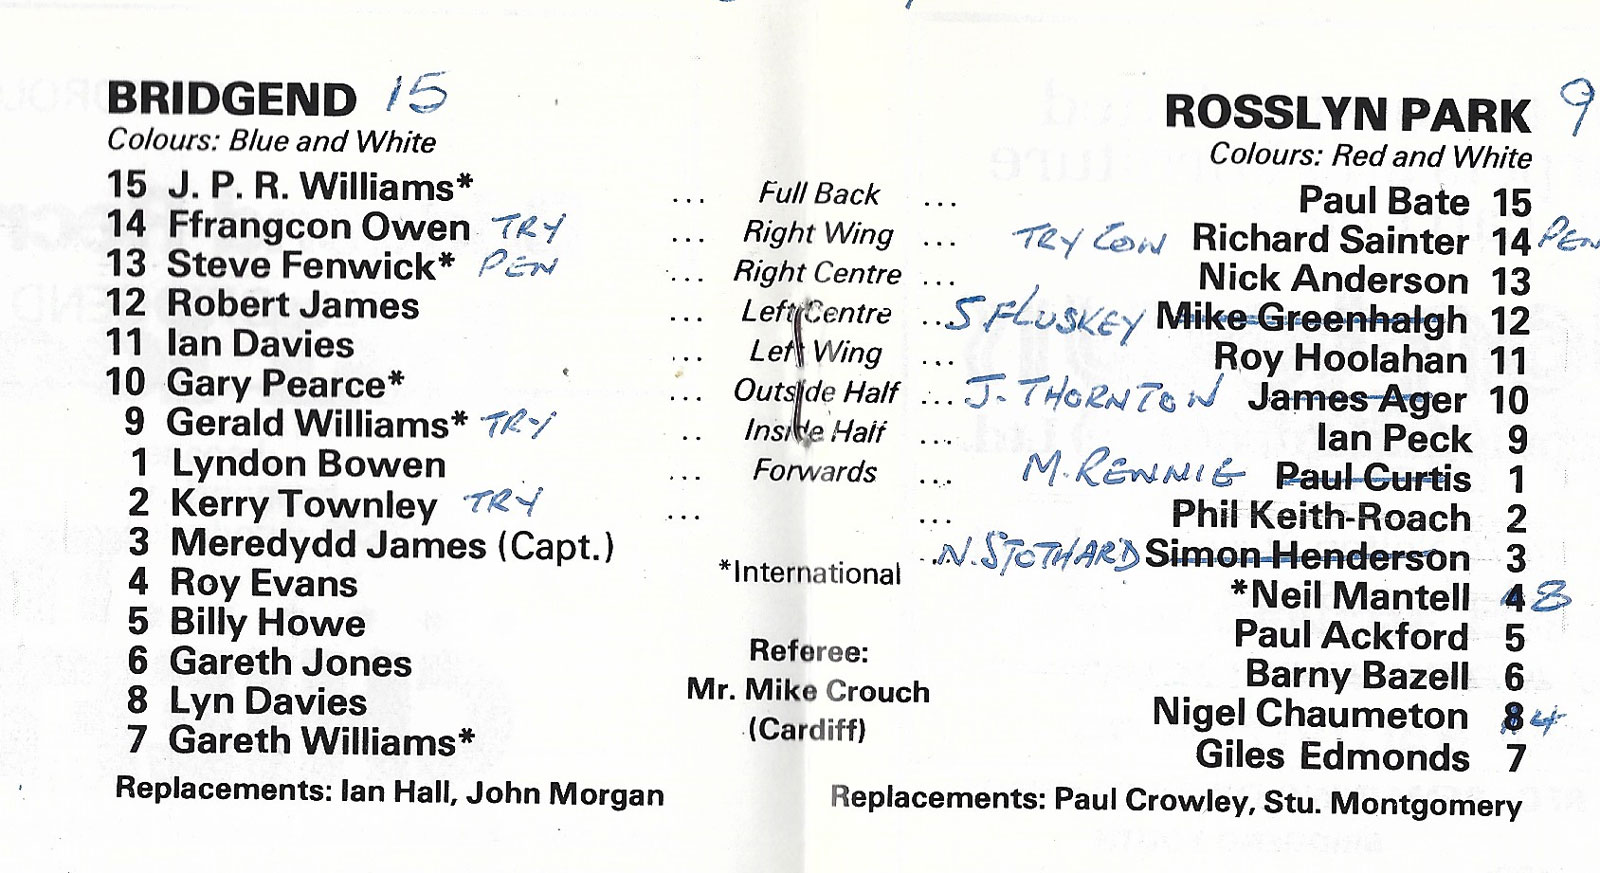 BRIDGEND 15
Colours: Blue and White
15 J. P. R. Williams*
14 Ffrangcon Owen TRY
13 Steve Fenwick* PEN
12 Robert James
11 Ian Davies
10 Gary Pearce*
9 Gerald Williams* TRY
1 Lyndon Bowen
2 Kerry Townley TRY
3 Meredydd James (Capt.)
4 Roy Evans
5 Billy Howe
6 Gareth Jones
8 Lyn Davies
7 Gareth Williams*
Replacements: Ian Hall, John Morgan
... Full Back ...
... Right Wing ...
... Right Centre ...
... Left Centre ...
... Left Wing ...
... Outside Half ...
.. Inside Half ...
... Forwards ...
... ...
*International
Referee:
Mr. Mike Crouch
(Cardiff)
ROSSLYN PARK 9
Colours: Red and White
Paul Bate 15
TRY CON Richard Sainter 14 PEN
Nick Anderson 13
S FLUSKEY Mike Greenhalgh 12
Roy Hoolahan 11
J. THORNTON James Ager 10
Ian Peck 9
M. RENNIE Paul Curtis 1
Phil Keith-Roach 2
N. STOTHARD Simon Henderson 3
*Neil Mantell 4 8
Paul Ackford 5
Barny Bazell 6
Nigel Chaumeton 8 4
Giles Edmonds 7
Replacements: Paul Crowley, Stu. Montgomery